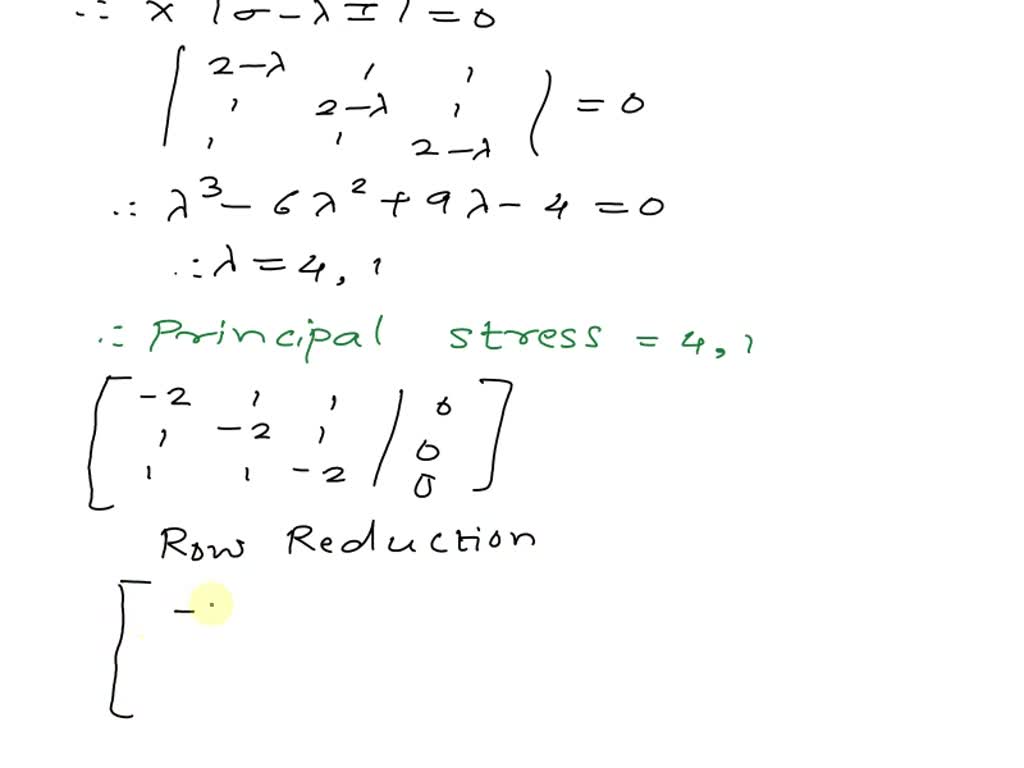 ∴ x |σ - λI| = 0
| 2-λ 1 1
1 2-λ 1
1 1 2-λ | = 0
∴ λ³ - 6λ² + 9λ - 4 = 0
∴ λ = 4, 1
∴ Principal stress = 4, 1
[ -2 1 1 | 0
1 -2 1 | 0
1 1 -2 | 0 ]
Row Reduction
[ -